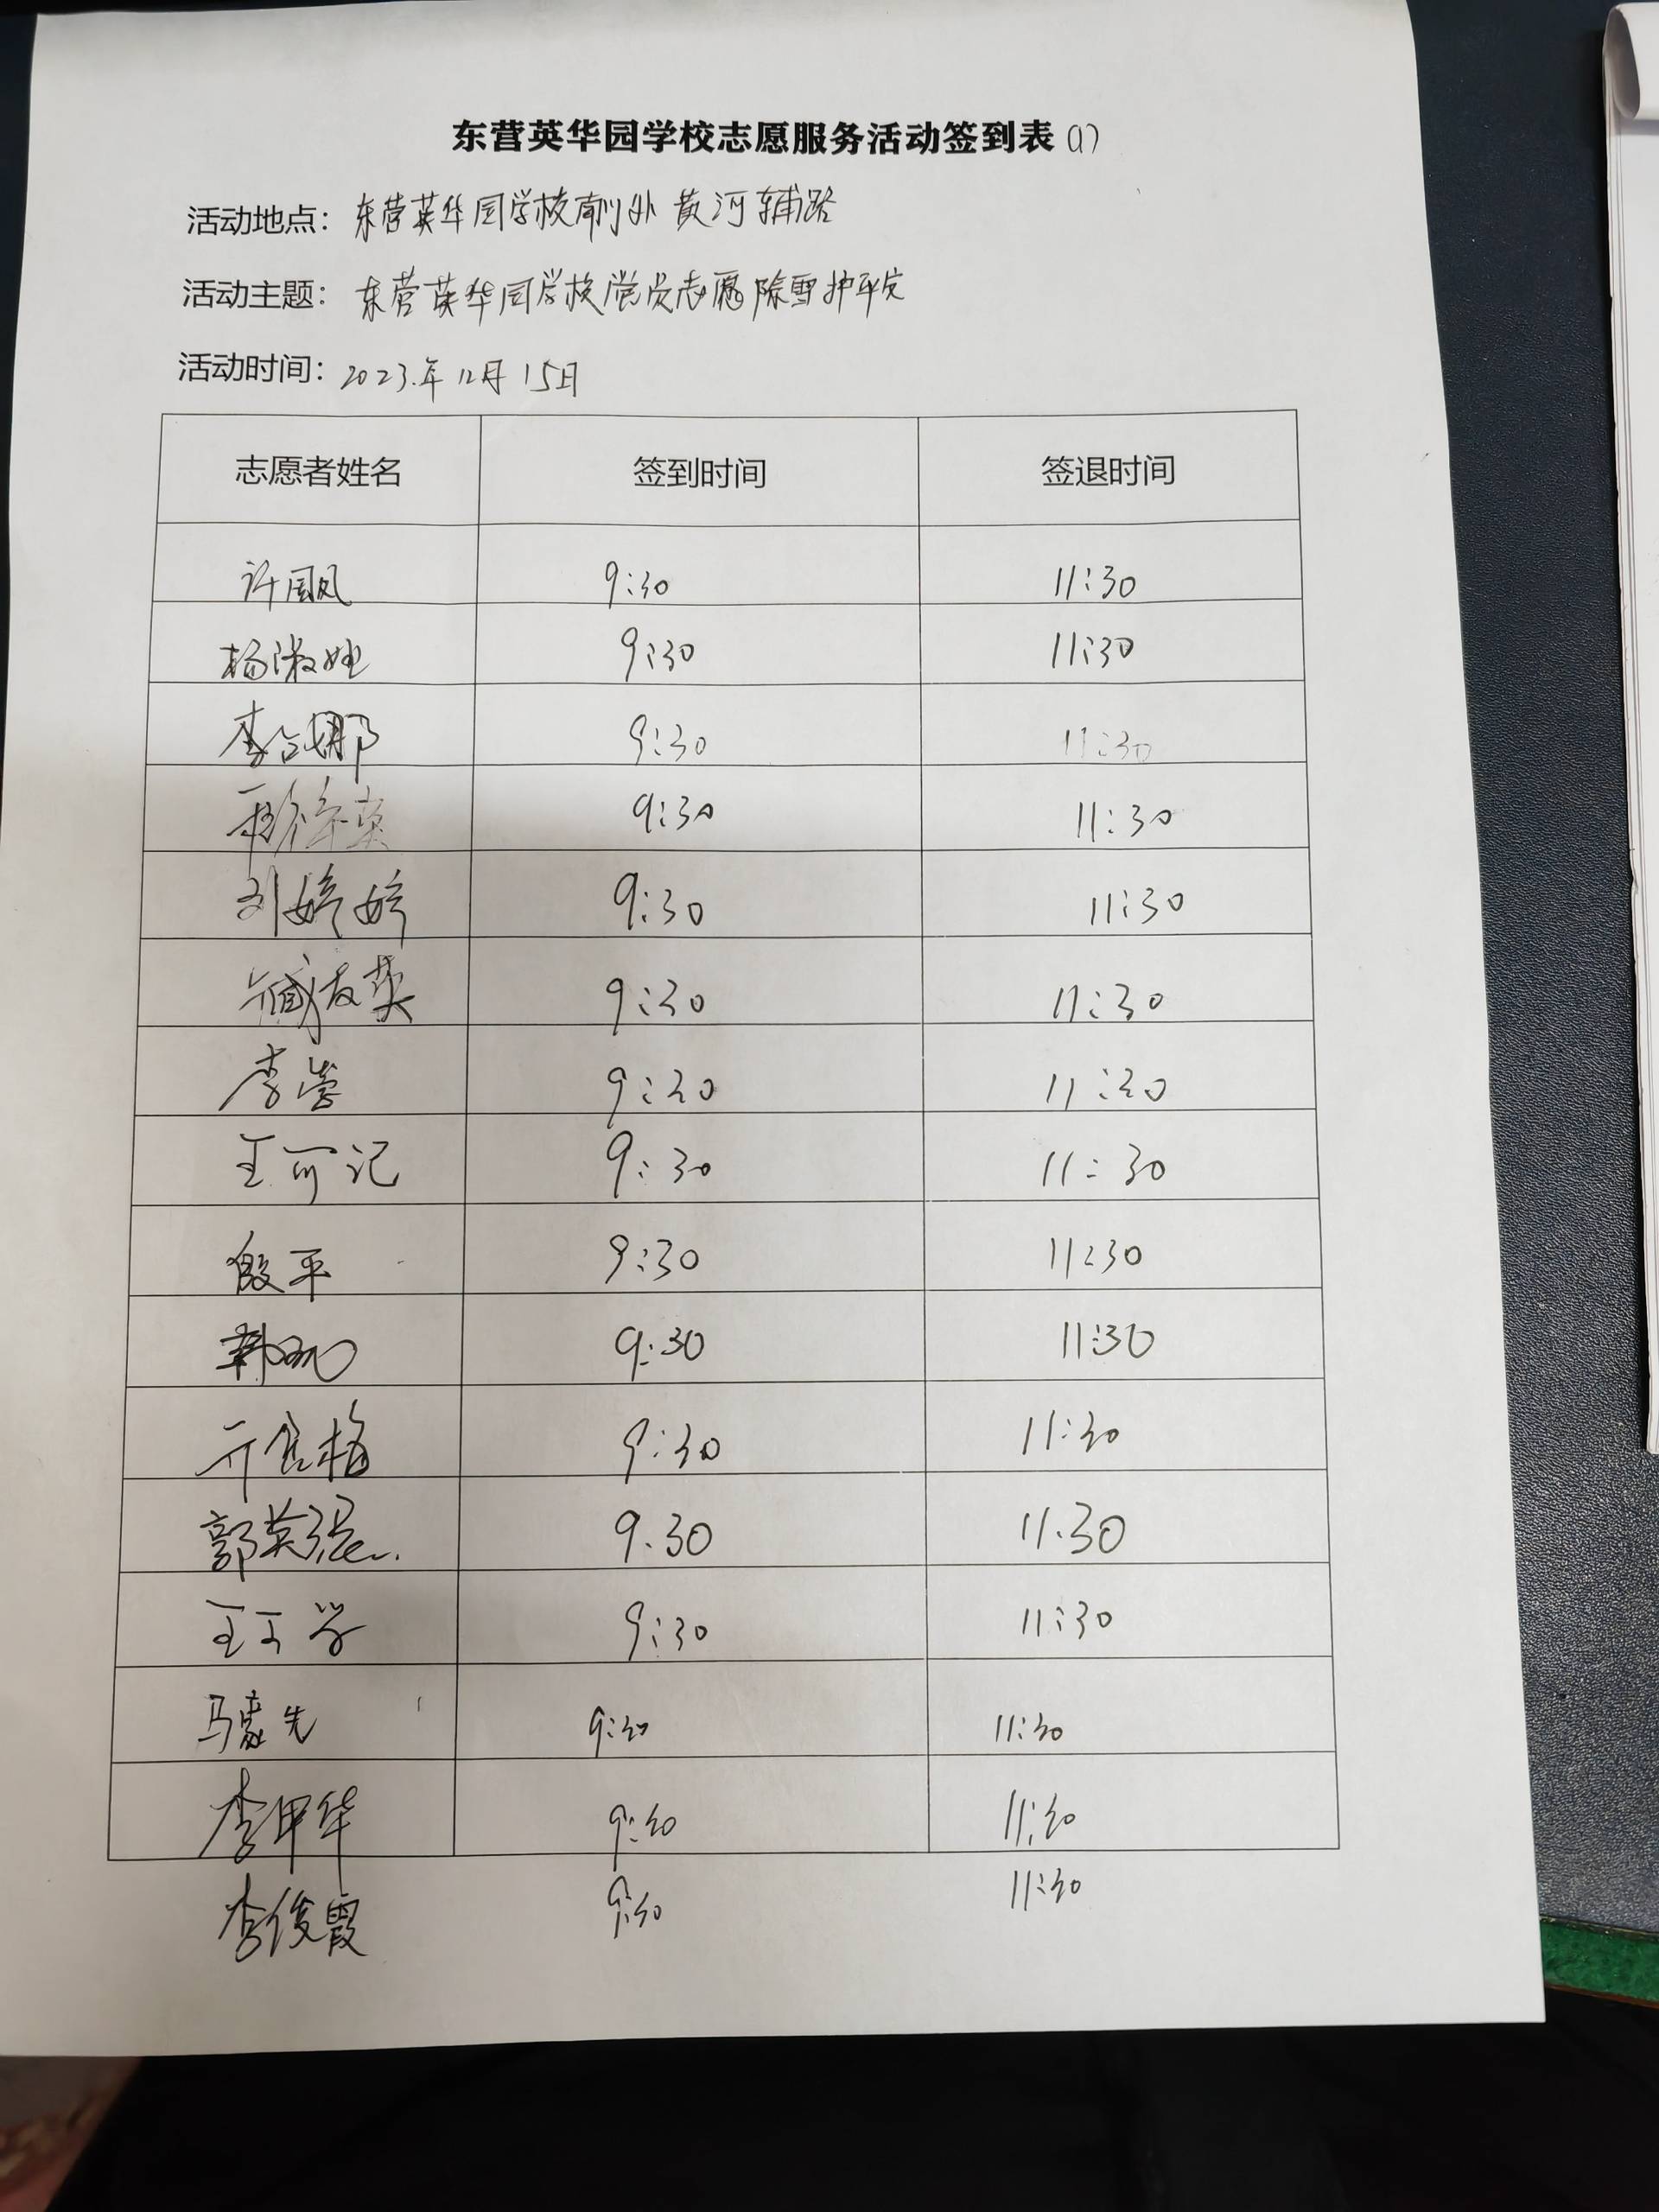 东营英华园学校志愿服务活动签到表(1)
活动地点：东营英华园学校南侧外黄河辅路
活动主题：东营英华园学校党员志愿除雪护平安
活动时间：2023.年12月15日
志愿者姓名 签到时间 签退时间
许凤 9:30 11:30
杨淑娃 9:30 11:30
李娜 9:30 11:30
英 9:30 11:30
刘婷婷 9:30 11:30
臧友英 9:30 11:30
李营 9:30 11:30
王可记 9:30 11:30
殷平 9:30 11:30
韩 9:30 11:30
亓梅 9:30 11:30
郭英强 9.30 11.30
王学 9:30 11:30
马先 9:30 11:30
李甲华 9:30 11:30
李俊霞 9:30 11:30